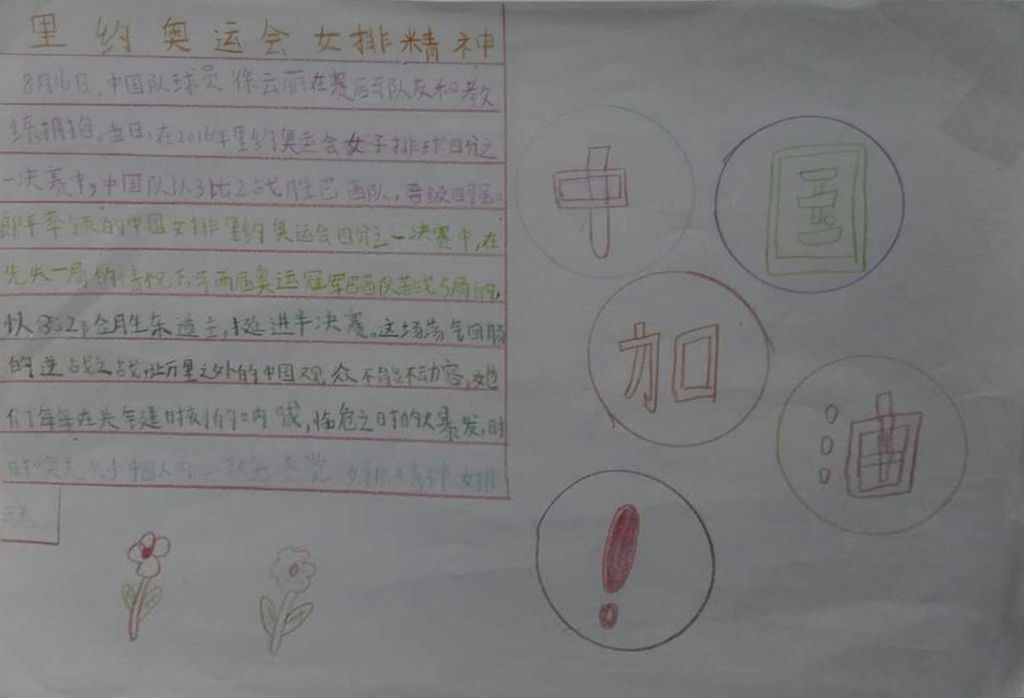 里约奥运会女排精神
8月16日,中国队球员徐云丽在赛后与队友和教
练拥抱。当日,在2016年里约奥运会女子排球四分之
一决赛中,中国队以3比2战胜巴西队,晋级四强。
郎平率领的中国女排里约奥运会四分之一决赛中,在
先失一局的情况下与两届奥运冠军巴西队苦战5局
以3:2,战胜东道主,挺进半决赛。这场荡气回肠
的逆战之战,让万里之外的中国观众不能不动容,她
们每年在关键时刻的呐喊,临危之时的大暴发,时
时 中国人 女排精神 女排
中
国
加
油
!